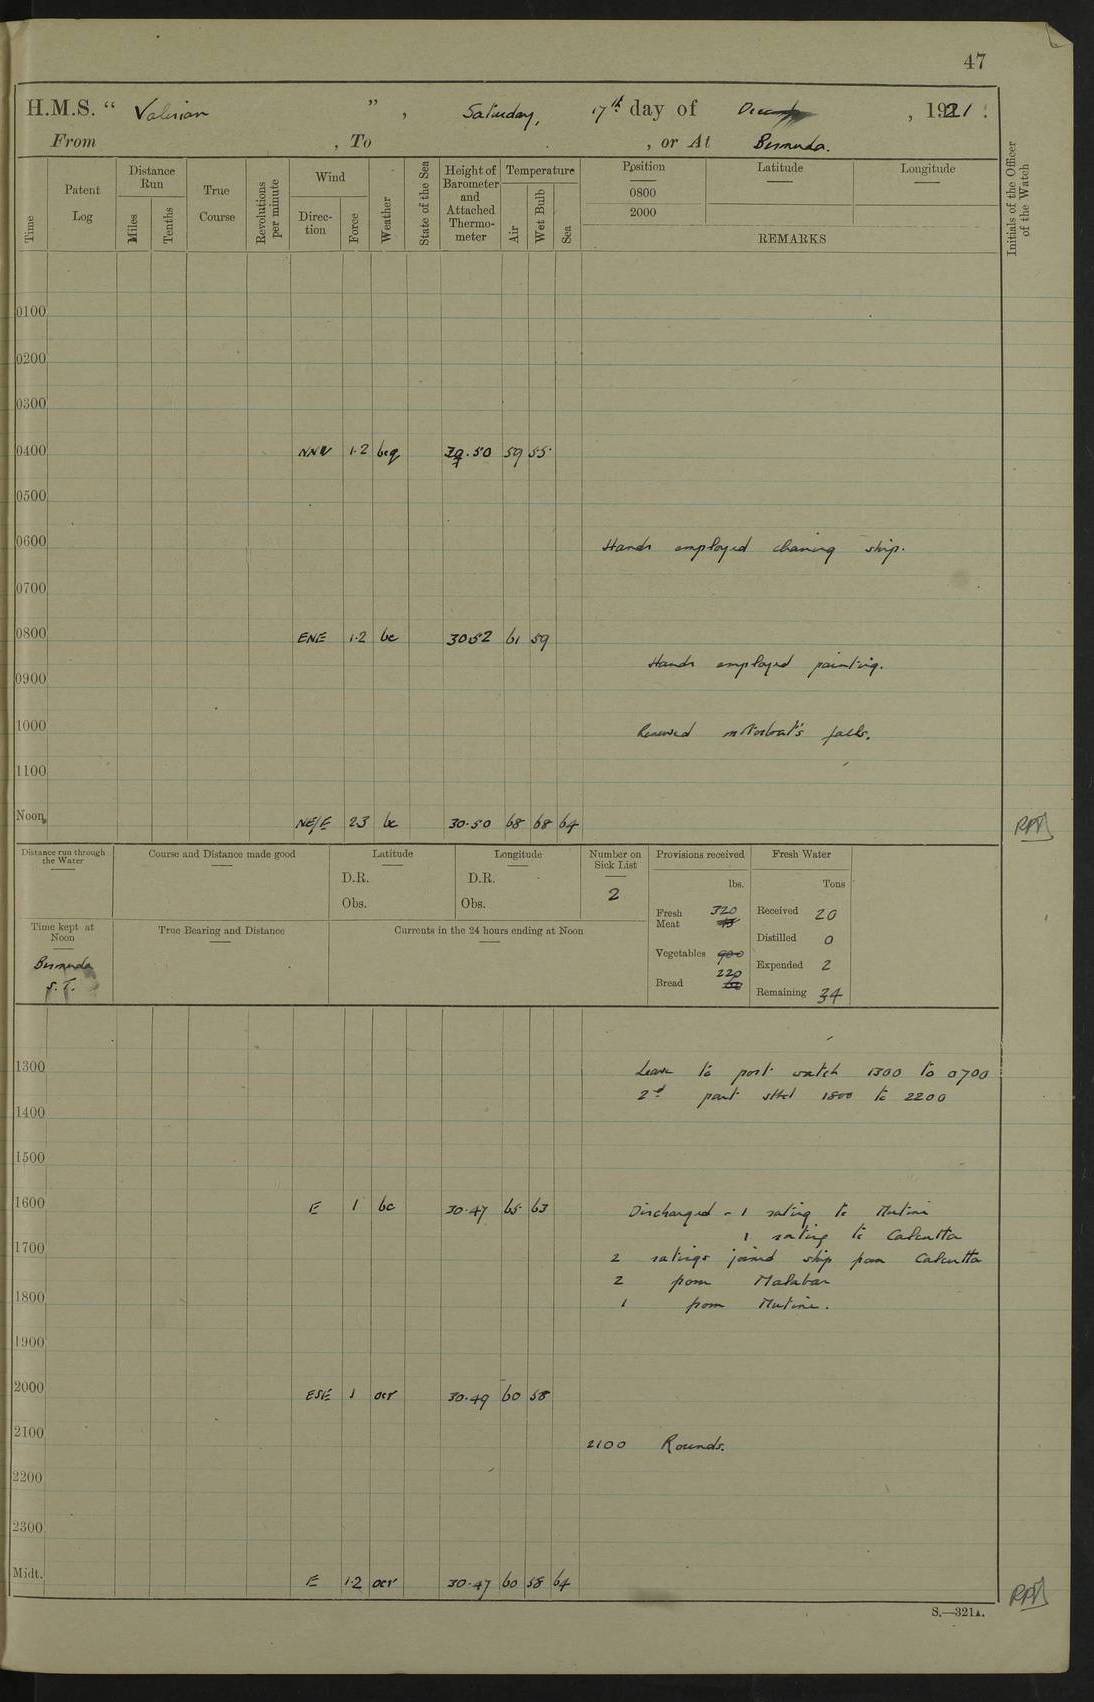 47
H.M.S. “ Valerian ” , Saturday, 17th day of December , 1921 .
From , To , or At Bermuda.
Time Patent Log Distance Run Miles Tenths True Course Revolutions per minute Wind Direction Force Weather State of the Sea Height of Barometer and Attached Thermometer Temperature Air Wet Bulb Sea Position 0800 2000 Latitude Longitude
REMARKS
Initials of the Officer of the Watch
0100
0200
0300
0400 NNW 1·2 bcq 30.50 59 55
0500
0600 Hands employed cleaning ship.
0700
0800 ENE 1·2 bc 30 52 61 59
Hands employed painting.
0900
1000 Renewed motorboat's falls.
1100
Noon NE/E 23 bc 30·50 68 68 64
Distance run through the Water Course and Distance made good Latitude Longitude Number on Sick List Provisions received Fresh Water
D.R. D.R. 2 lbs. Tons
Obs. Obs. Fresh Meat 320 Received 20
Time kept at Noon True Bearing and Distance Currents in the 24 hours ending at Noon Distilled 0
Bermuda S.T. Vegetables 900 Expended 2
Bread 220 Remaining 34
1300 Leave to port watch 1300 to 0700
2nd part stbd 1800 to 2200
1400
1500
1600 E 1 bc 30·47 65 63 Discharged - 1 rating to Mutine
1 rating to Calcutta
1700 2 ratings joined ship from Calcutta
2 from Malabar
1800 1 from Mutine.
1900
2000 ESE 1 ocr 30·49 60 58
2100 2100 Rounds.
2200
2300
Midt. E 1·2 ocr 30·47 60 58 64
S.—321A.